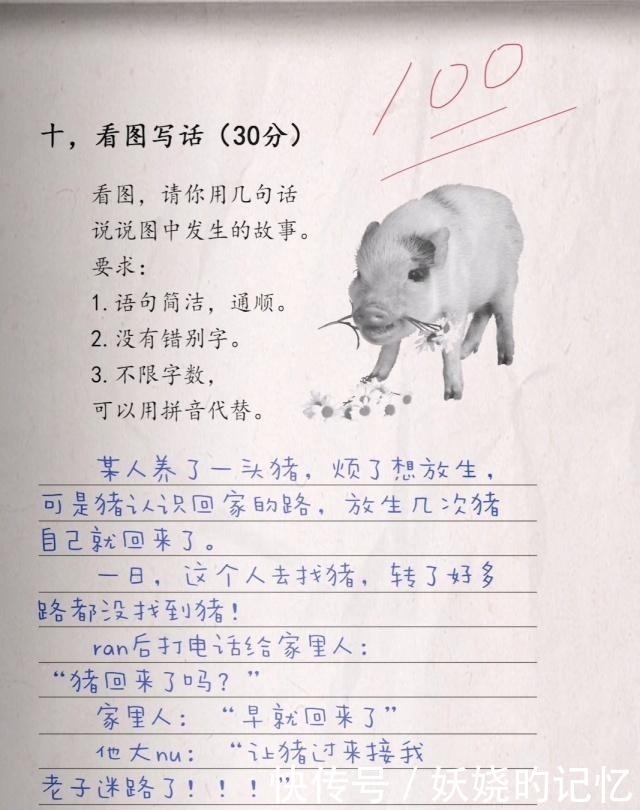 100
十，看图写话（30分）
看图，请你用几句话
说说图中发生的故事。
要求：
1.语句简洁，通顺。
2.没有错别字。
3.不限字数，
可以用拼音代替。
某人养了一头猪，烦了想放生，
可是猪认识回家的路，放生几次猪
自己就回来了。
一日，这个人去找猪，转了好多
路都没找到猪！
ran后打电话给家里人：
“猪回来了吗？”
家里人：“早就回来了”
他大nu：“让猪过来接我
老子迷路了！！！”
快传号／妖娆的记忆